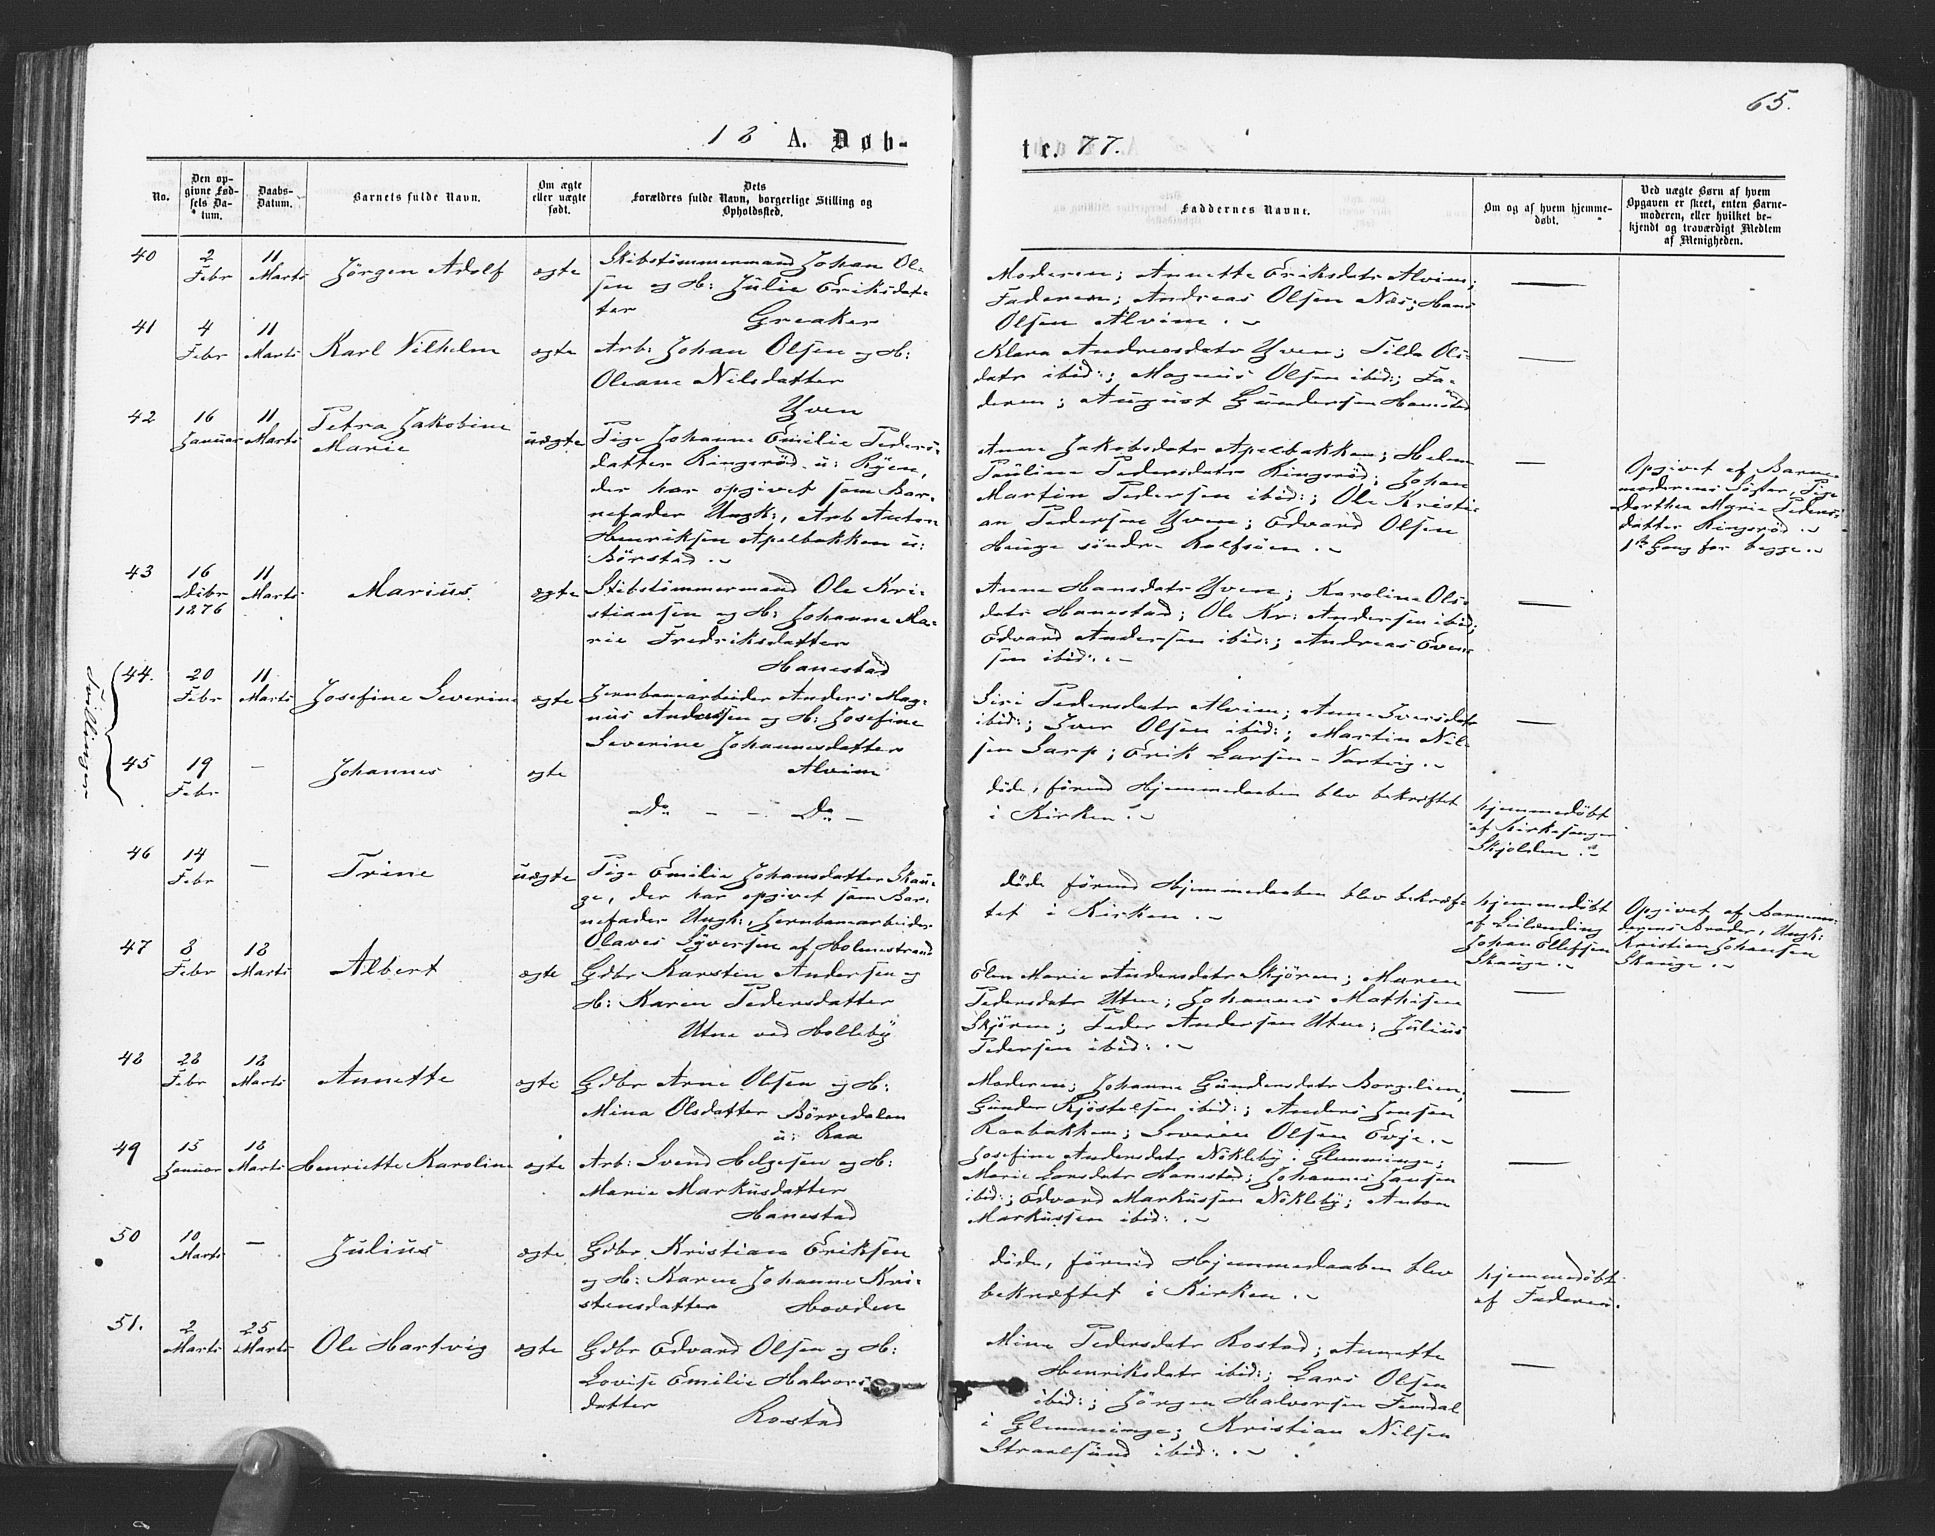 65.
18 A. Døb-
te. 77.
No.
Den op-
givne Fød-
sels Da-
tum.
Daabs-
Datum.
Barnets fulde Navn.
Om ægte
eller uægte
født.
Dets
Forældres fulde Navn, borgerlige Stilling og
Opholdssted.
Faddernes Navne.
Om og af hvem hjemme-
døbt.
Ved uægte Børn af hvem
Opgaven er skeet, enten Barne-
moderen, eller hvilket be-
kjendt og troværdigt Medlem
af Menigheden.
40
2
Febr
11
Marts
Jørgen Adolf
ægte
Skibstømmermand Johan Ol-
sen og H: Julie Eriksdat-
ter
Greaker
Moderen; Annette Eriksdatr Alvim;
Faderen; Andreas Olsen Næs; Hans
Olsen Alvim.
—
41
4
Febr
11
Marts
Karl Vilhelm
ægte
Arb: Johan Olsen og H:
Oleane Nilsdatter
Yven
Klara Andreasdatr Yven; Tilda Ols-
datr ibid:; Magnus Olsen ibid:; Fa-
deren; August Gundersen Hanestad
—
42
16
Januar
11
Marts
Petra Jakobine
Marie
uægte
Pige Johanne Emilie Peders-
datter Ringsrød u: Ryen,
der har opgivet som Bar-
nefader Ungk:, Arb Anton
Henriksen Apelbakken u:
Børstad.
Anne Jakobsdatr Apelbakken; Helene
Pauline Pedersdatr Ringsrød; Johan
Martin Pedersen ibid:; Ole Kristi-
an Pedersen Yven; Edvard Olsen
Hauge søndre Rolfsøen.
—
Opgivet af Barne-
moderens Søster, Pige
Dorthea Marie Peders-
datter Ringsrød
1ste Gang for begge.
43
16
Debr
1876
11
Marts
Marius
ægte
Skibstømmermand Ole Kri-
stiansen og H: Johanne Ma-
rie Fredriksdatter
Hanestad
Anne Hansdatr Yven; Karoline Ols-
datr Hanestad; Ole Kr: Andersen ibid;
Edvard Andersen ibid:; Andreas Even-
sen ibid:.
—
Tvillinger
44.
20
Febr
11
Marts
Josefine Severine
ægte
Jernbanearbeider Anders Mag-
nus Andersen og H: Josefine
Severine Johannesdatter
Alvim
Siri Pedersdatr Alvim; Anne Iversdatr
ibid:; Iver Olsen ibid:; Martin Nil-
sen Sarp; Erik Larsen Vartvig.
—
45
19
Febr
—
Johannes
ægte
Do — — Do —
døde, førend Hjemmedaaben blev bekræftet
i Kirken.
hjemmedøbt
af Kirkesanger
Skjolden.
46
14
Febr
—
Trine
uægte
Pige Emilie Johansdatter Skau-
ge, der har opgivet som Bar-
nefader Ungk: Jernbanearbeider
Olaves Syversen af Holmestrand
døde førend Hjemmedaaben blev bekræf-
tet i Kirken.
hjemmedøbt
af Leilænding
Johan Ellefsen
Skauge.
Opgivet af Barnemo-
derens Broder, Ungk:
Kristian Johansen
Skauge.
47
8
Febr
18
Marts
Albert
ægte
Gdbr Karsten Andersen og
H: Karen Pedersdatter
Utne ved Holleby
Elen Marie Andersdatr Skjøren; Maren
Pedersdatr Utne; Johannes Mathisen
Skjøren; Peder Andersen Utne; Julius
Pedersen ibid:.
—
48
28
Febr
18
Marts
Annette
ægte
Gdbr Arne Olsen og H:
Mina Olsdatter Børredalen
u: Raa
Moderen; Johanne Gundersdatr Borgelien;
Gunder Kjøstelsen ibid:; Anders Jensen
Raabakken; Severin Olsen Evje.
—
49
15
Januar
18
Marts
Henriette Karoline
ægte
Arb: Svend Helgesen og H:
Marie Markusdatter
Hanestad
Josefine Andersdatr Nøkleby i Glemminge;
Marie Larsdatr Hanestad; Johannes Jansen
ibid:; Edvard Markussen Nøkleby; Anton
Markussen ibid:.
—
50
10
Marts
—
Julius
ægte
Gdbr Kristian Eriksen
og H: Karen Johanne Kri-
stensdatter Hovden
døde, førend Hjemmedaaben blev
bekræftet i Kirken.
hjemmedøbt
af Faderen.
51.
2
Marts
25
Marts
Ole Hartvig
ægte
Gdbr Edvard Olsen og H:
Lovise Emilie Halvors-
datter
Rostad
Mina Pedersdatr Rostad; Annette
Henriksdatr ibid:; Lars Olsen
ibid:; Jørgen Halvorsen Femdal
i Glemminge; Kristian Nilsen
Straalsund ibid:.
—